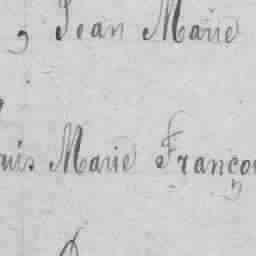 Jean Marie
uis Marie Françoi